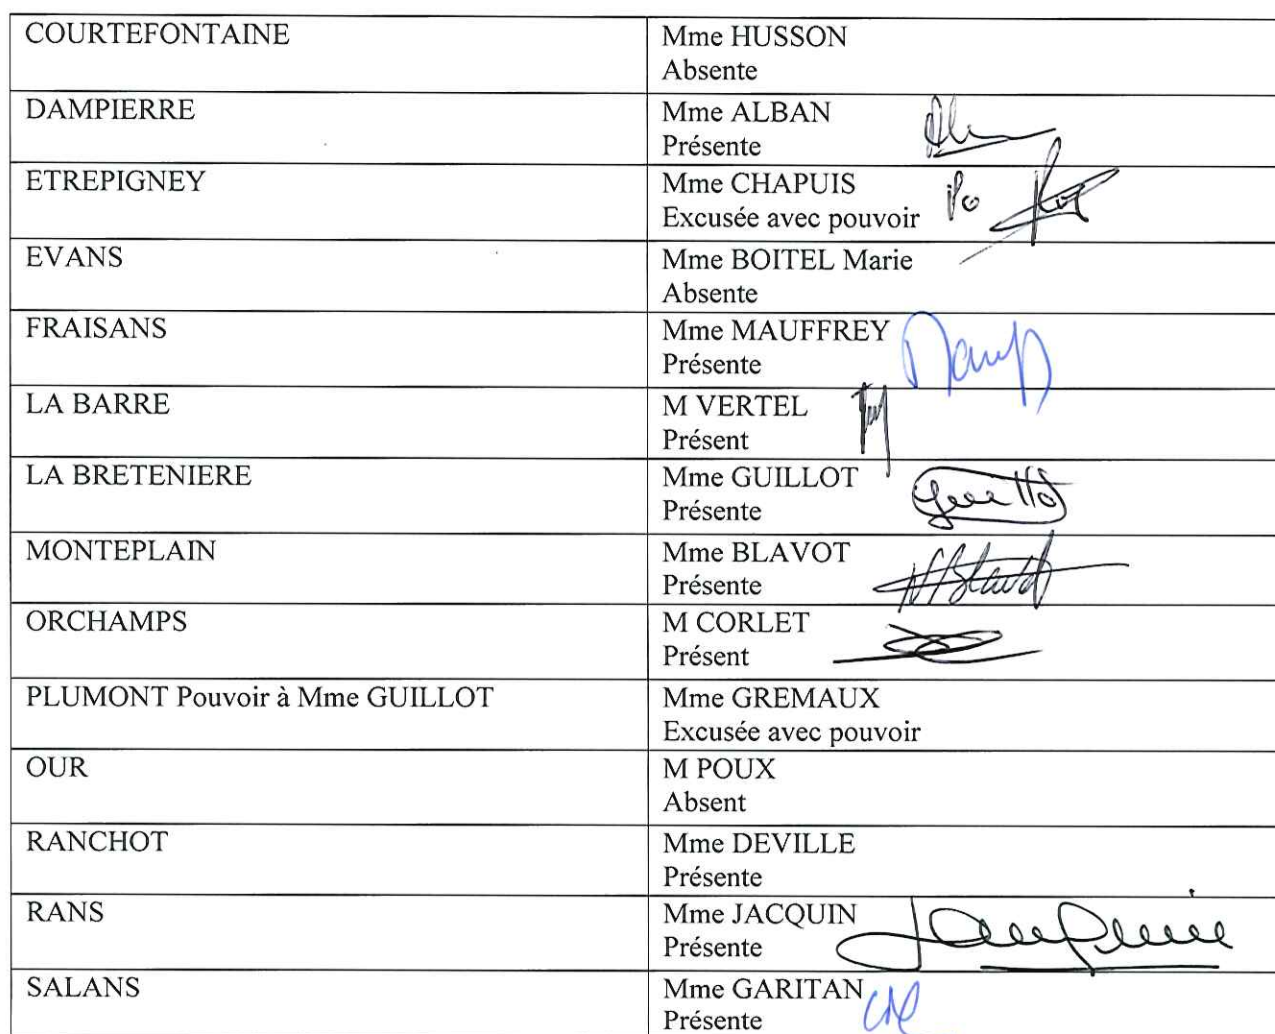 COURTEFONTAINE
Mme HUSSON
Absente
DAMPIERRE
Mme ALBAN
Présente
ETREPIGNEY
Mme CHAPUIS
Excusée avec pouvoir Po
EVANS
Mme BOITEL Marie
Absente
FRAISANS
Mme MAUFFREY
Présente
LA BARRE
M VERTEL
Présent
LA BRETENIERE
Mme GUILLOT
Présente
MONTEPLAIN
Mme BLAVOT
Présente
ORCHAMPS
M CORLET
Présent
PLUMONT Pouvoir à Mme GUILLOT
Mme GREMAUX
Excusée avec pouvoir
OUR
M POUX
Absent
RANCHOT
Mme DEVILLE
Présente
RANS
Mme JACQUIN
Présente
SALANS
Mme GARITAN
Présente